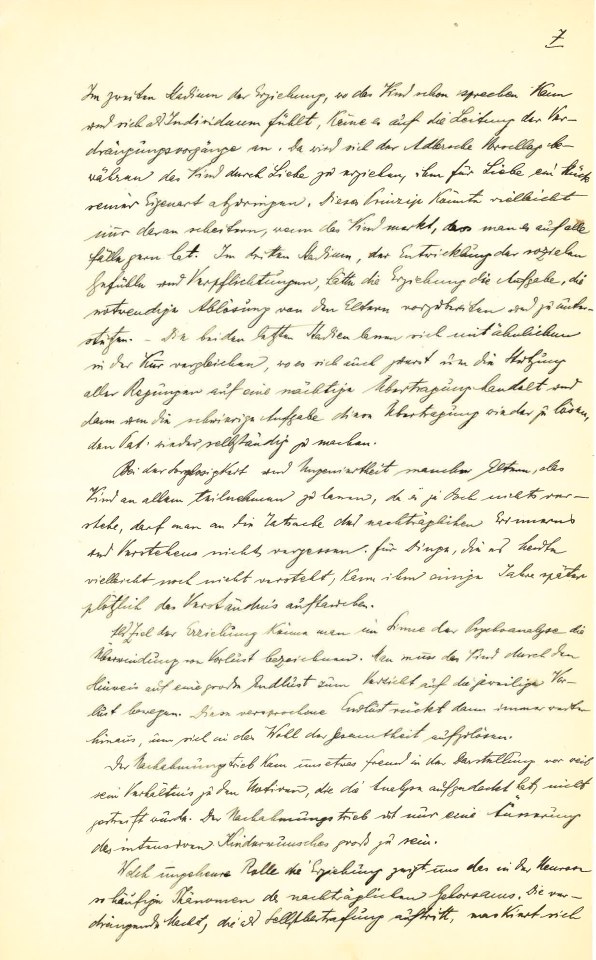 7
Im zweiten Stadium der Erziehung, wo das Kind schon sprechen kann
und sich als Individuum fühlt, käme es auf die Leitung der Ver-
drängungsvorgänge an. Da wird sich der Adlersche Vorschlag be-
währen das Kind durch Liebe zu erziehen, ihm für Liebe ein Stück
seiner Eigenart abzuringen. Dieses Prinzip könnte vielleicht
nur daran scheitern, wenn das Kind merkt, dass man es auf alle
Fälle gern hat. Im dritten Stadium, der Entwicklung der sozialen
Gefühle und Verpflichtungen, hätte die Erziehung die Aufgabe, die
notwendige Ablösung von den Eltern vorzubereiten und zu unter-
stützen. – Die beiden letzten Stadien lassen sich mit ähnlichen
in der Kur vergleichen, wo es sich auch zuerst um die Stützung
aller Regungen auf eine mächtige Übertragung handelt und
dann um die schwierige Aufgabe diese Übertragung wieder zu lösen,
den Pat. wieder selbständig zu machen.
Bei der Sorglosigkeit und Ungeniertheit mancher Eltern, das
Kind an allem teilnehmen zu lassen, da es ja doch nichts ver-
stehe, darf man an die Tatsache des nachträglichen Erinnerns
und Verstehens nicht vergessen. Für Dinge, die es heute
vielleicht noch nicht versteht, kann ihm einige Jahre später
plötzlich das Verständnis auftauchen.
Als Ziel der Erziehung könne man im Sinne der Psychoanalyse die
Überwindung von Vorlust bezeichnen. Man muss das Kind durch den
Hinweis auf eine große Endlust zum Verzicht auf die jeweilige Vor-
lust bewegen. Diese versprochene Endlust rückt dann immer weiter
hinaus, um sich in das Wohl der Gesamtheit aufzulösen.
Der Nachahmungstrieb kam uns etwas fremd in der Darstellung vor weil
sein Verhältnis zu den Motiven, die die Analyse aufgedeckt hat, nicht
gestreift wurde. Der Nachahmungstrieb ist nur eine Äusserung
des intensiven Kinderwunsches groß zu sein.
Welch ungeheure Rolle die Erziehung zeigt uns das in der Neurose
so häufige Phänomen des nachträglichen Gehorsams. Die ver-
drängende Macht, die als Selbstbestrafung auftritt, maskiert sich